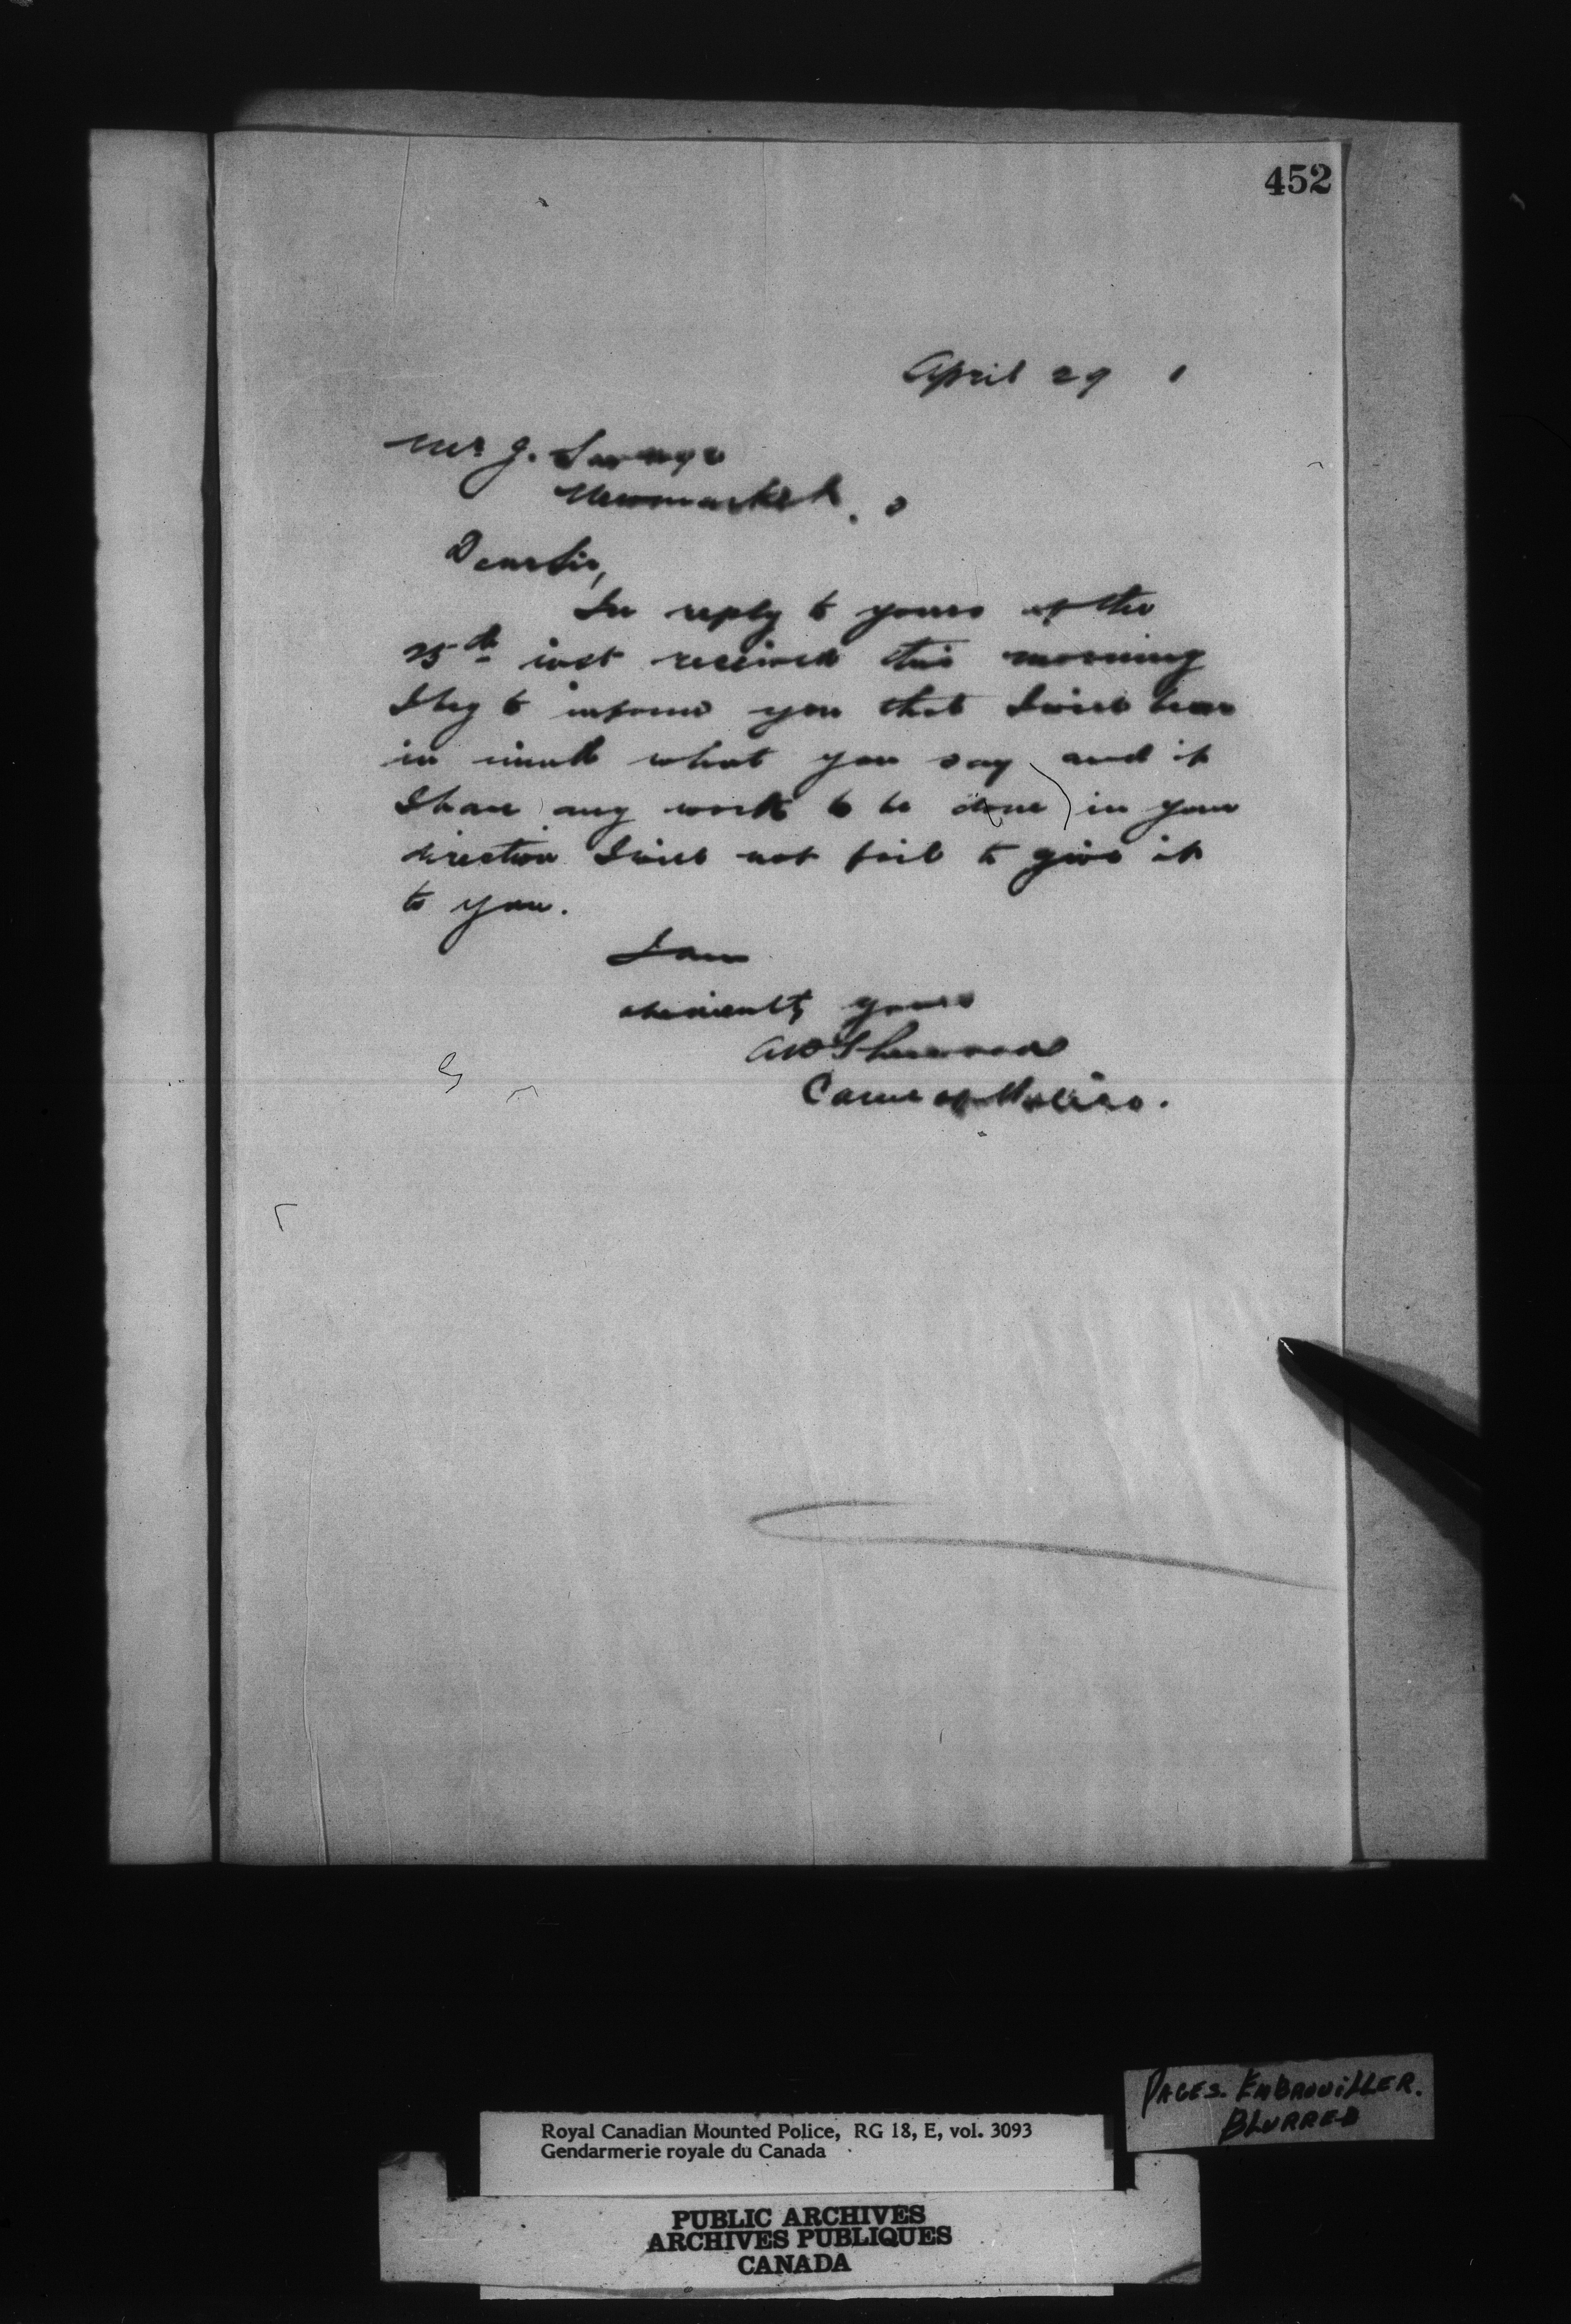 452
April 29 1
Mr J. Savage
Newmarket. O
Dear Sir,
In reply to yours of the
25th inst received this morning
I beg to inform you that I will bear
in mind what you say and if
I have any work to be done in your
direction I will not fail to give it
to you.
I am
obediently yours
AP Sherwood
Com of Police.
PAGES. EMBROUILLER.
BLURRED
Royal Canadian Mounted Police, RG 18, E, vol. 3093
Gendarmerie royale du Canada
PUBLIC ARCHIVES
ARCHIVES PUBLIQUES
CANADA